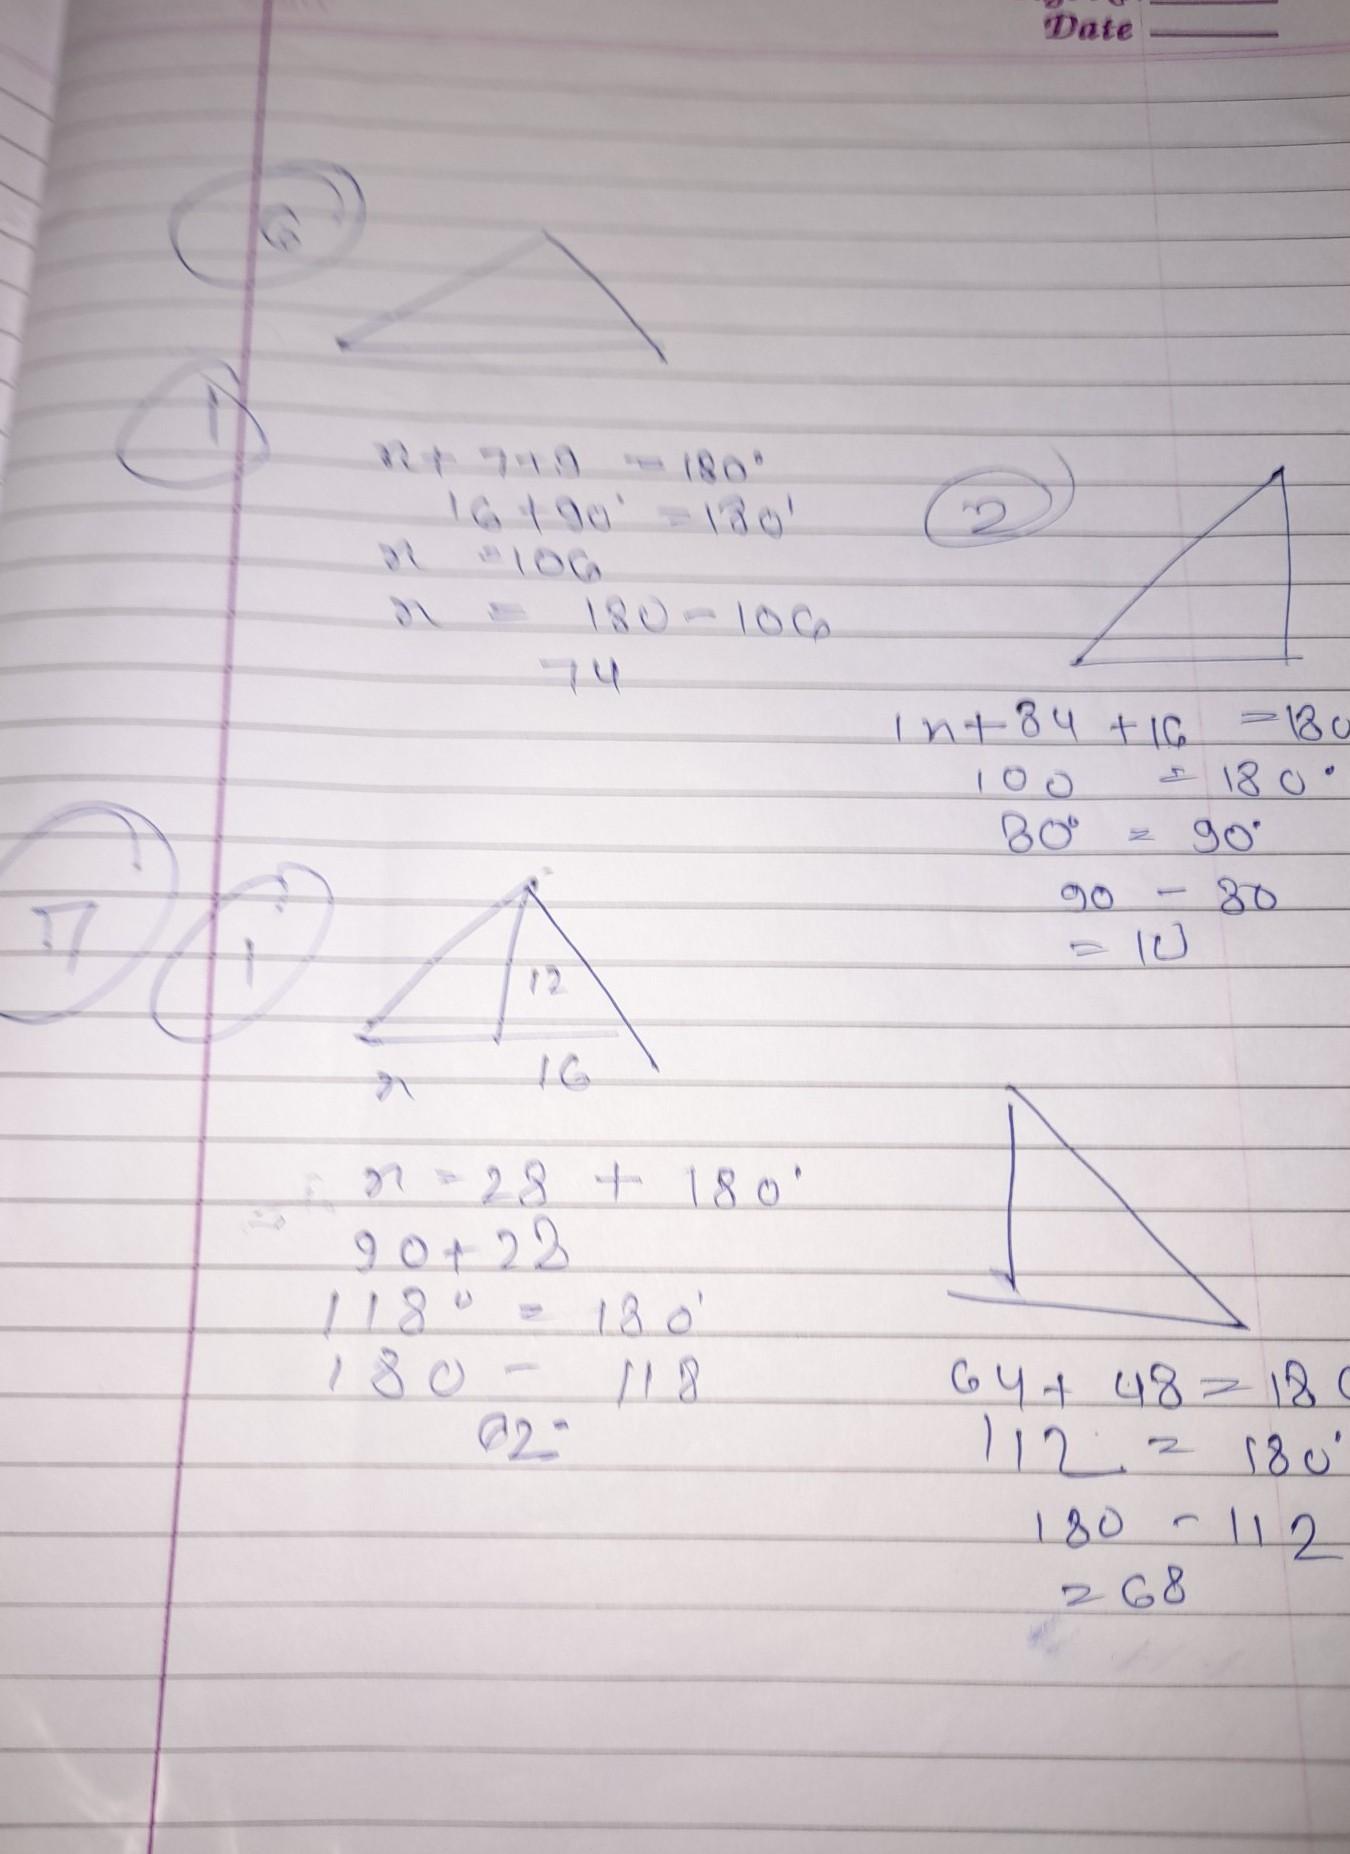 Date
6
1
x + 7+9 = 180°
16 + 90° = 180°
x = 106
x = 180 - 106
74
2
1x + 84 + 16 = 180
100 = 180°
80° = 90°
90 - 80
= 10
1
12
x 16
x = 28 + 180°
90 + 28
118° = 180°
180 - 118
62°
64 + 48 = 180
112 = 180°
180 - 112
= 68